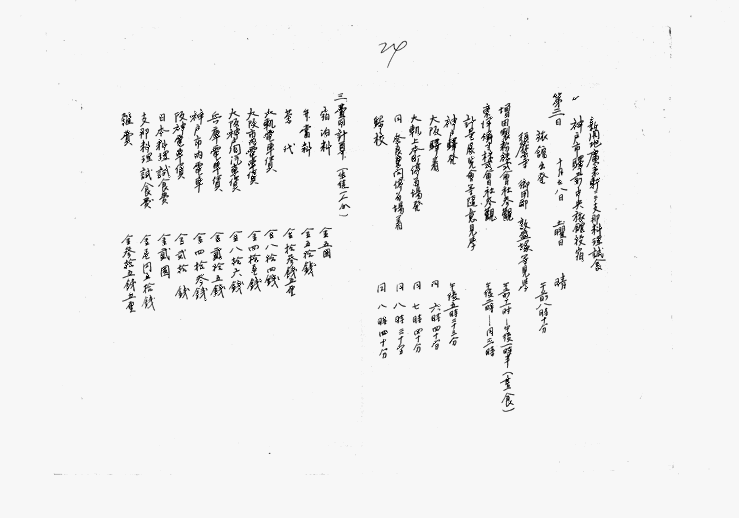 24
新開地廣東軒ニテ支那料理試食
〃 神戸市驛前中央旅館投宿
第三日 十月 八日 土曜日 晴
旅館出發 午前八時十分
須磨寺 御用邸 敦盛塚等見學
増田製粉株式會社參觀 午前十一時―午後一時半(晝食)
東洋 株式會社參觀 午後二時―同三時
計量展覧會等隨意見學
神戸驛發 午後五時三十三分
大阪驛着 同 六時四十分
大軌上本町停留場發 同 七時四十分
同 奈良 停留場着 同 八時三十分
歸校 同 八時四十分
三、費用計算(生徒一人分)
宿泊料 金五圓
辛當料 金五拾錢
茶代 金拾參錢五厘
大軌電車賃 金八拾四錢
大阪市内電車賃 金四拾 錢
大阪神戸間汽車賃 金八拾六錢
兵庫電車賃 金貳拾五錢
神戸市内電車 金四拾參錢
阪神電車賃 金貳拾 錢
日本料理試食費 金貳圓
支那料理試食費 金壱円五拾錢
雜費 金參拾五錢五厘